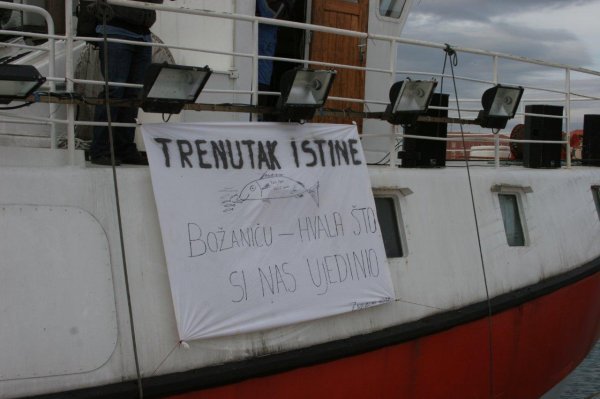 TRENUTAK ISTINE
BOŽANIĆU – HVALA ŠTO
SI NAS UJEDINIO